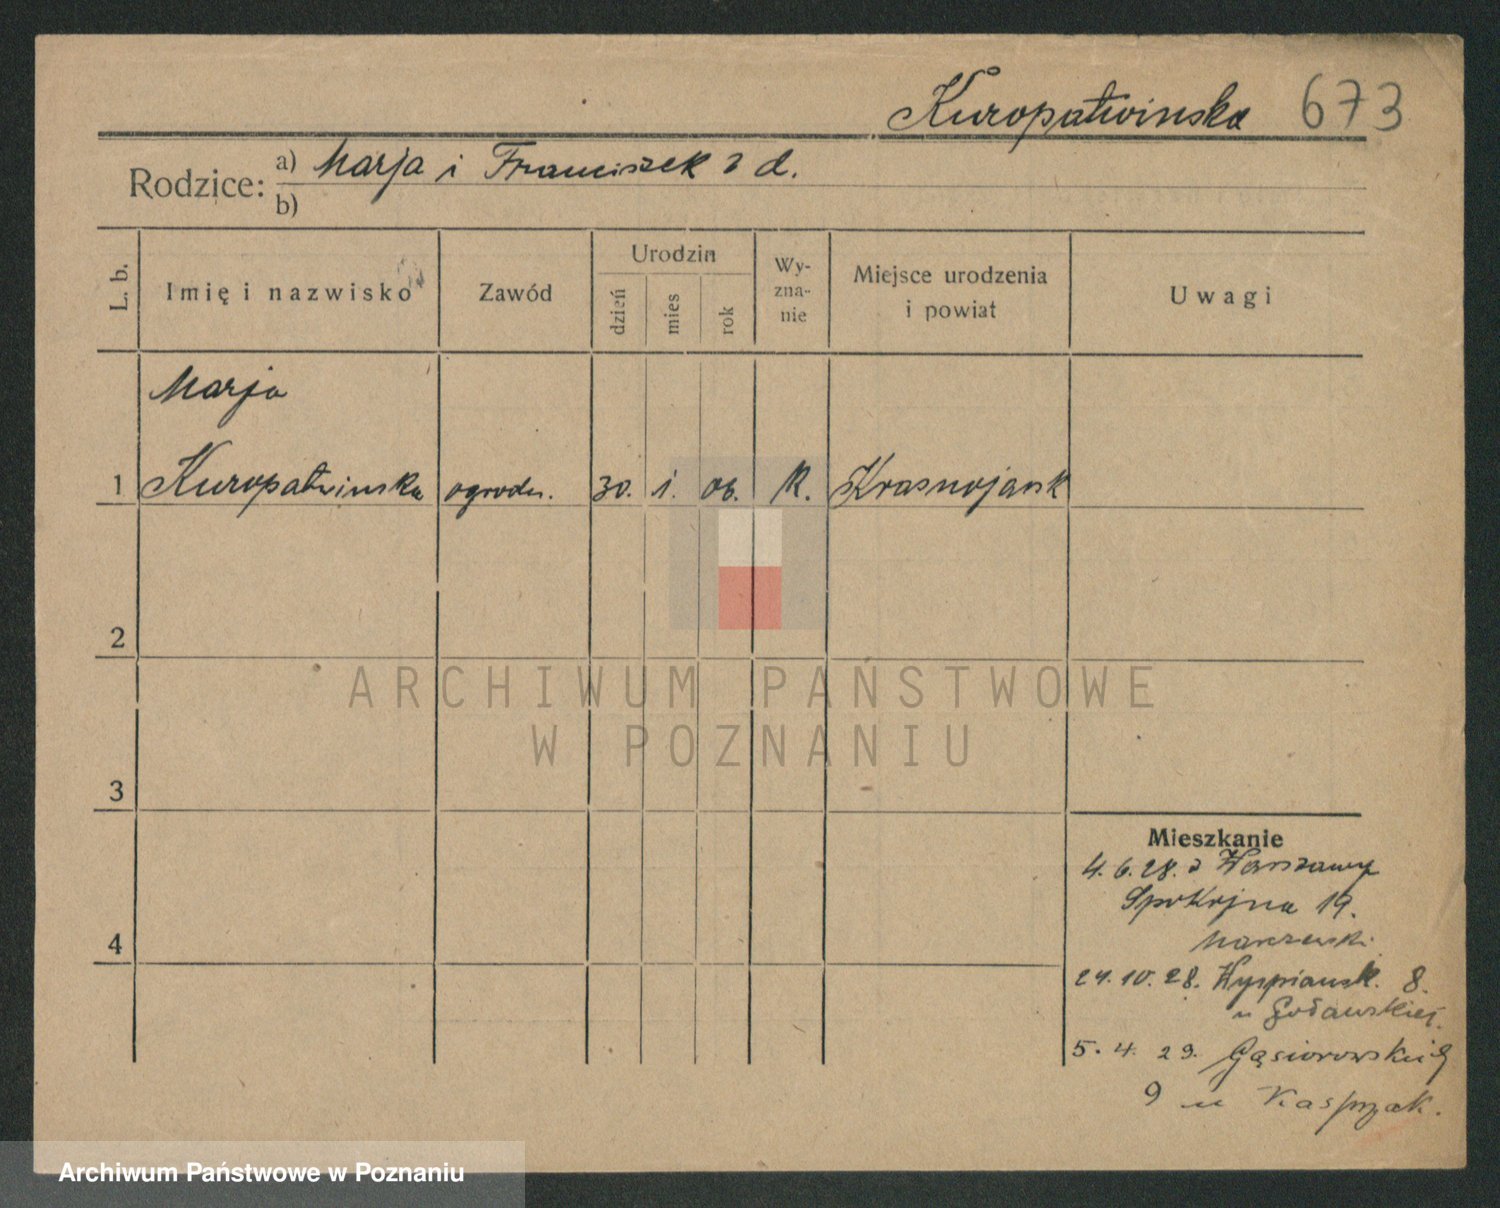 Kuropatwinska 673
Rodzice: a) Marja i Franciszek z d.
b)
L. b.
Imię i nazwisko
Zawód
Urodzin
dzień
mies
rok
Wy-
zna-
nie
Miejsce urodzenia
i powiat
Uwagi
Marja
1 Kuropatwinska ogrodn. 30. 1. 06. R. Krasnojarsk
2
ARCHIWUM PAŃSTWOWE
W POZNANIU
3
4
Mieszkanie
4.6.28. z Warszawy
Spokojna 19.
24.10.28. Wyspiansk. 8.
5.4.29. Gąsiorowskich
9 u Kasprzak.
Archiwum Państwowe w Poznaniu